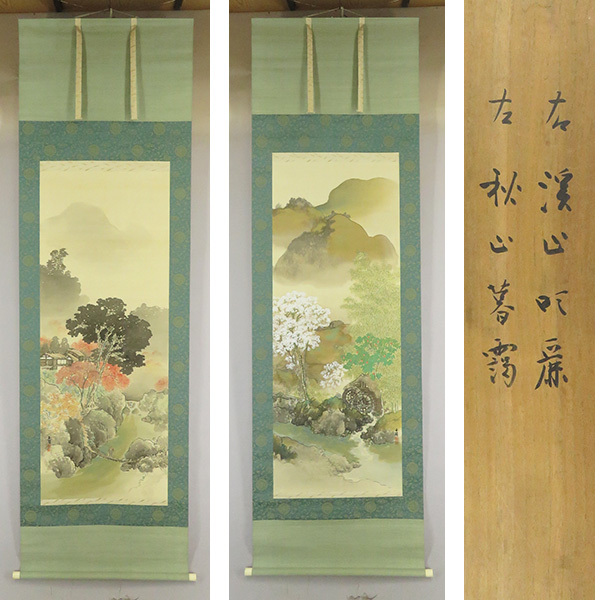 右 溪山明麗
左 秋山暮靄